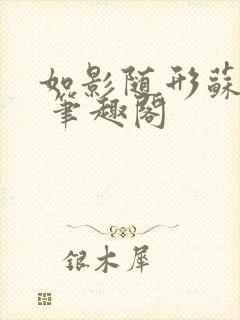 如影随形蘇
筆趣閣
银木犀